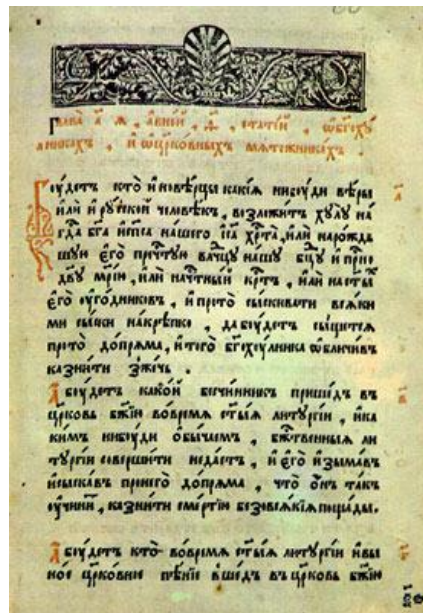 боудетъ кто иновѣрцы какїя нибоуди вѣры
или и рускои человѣкъ, возложитъ хулу на
гда бга и спса нашего іса хрта, или нарождь
шую его пречтую влчцу нашу бцу и прно
дву мрїю, или на чтныи кртъ, или на стыхъ
его оугодниковъ, и про то сыскивати всяки
ми сыски накрѣпко, да боудетъ сыщется
про то допряма, и того бгохоулника ѡбличивъ
казнити зжечь.
А боудетъ какои бесчинникъ пришедъ въ
црковь бжїю вовремя стыя литургїи, и ка
кимъ нибоуди обычаемъ, бжтвенныя ли
тургїи совершити недастъ, и его изымавъ
и сыскавъ про него допряма, что онъ такъ
оучинитъ, казнити смертїю безовсякїя пощады.
А боудетъ кто вовремя стыя литургїи и в ы
ное црковное пѣнїе вшедъ въ црковь бжїю